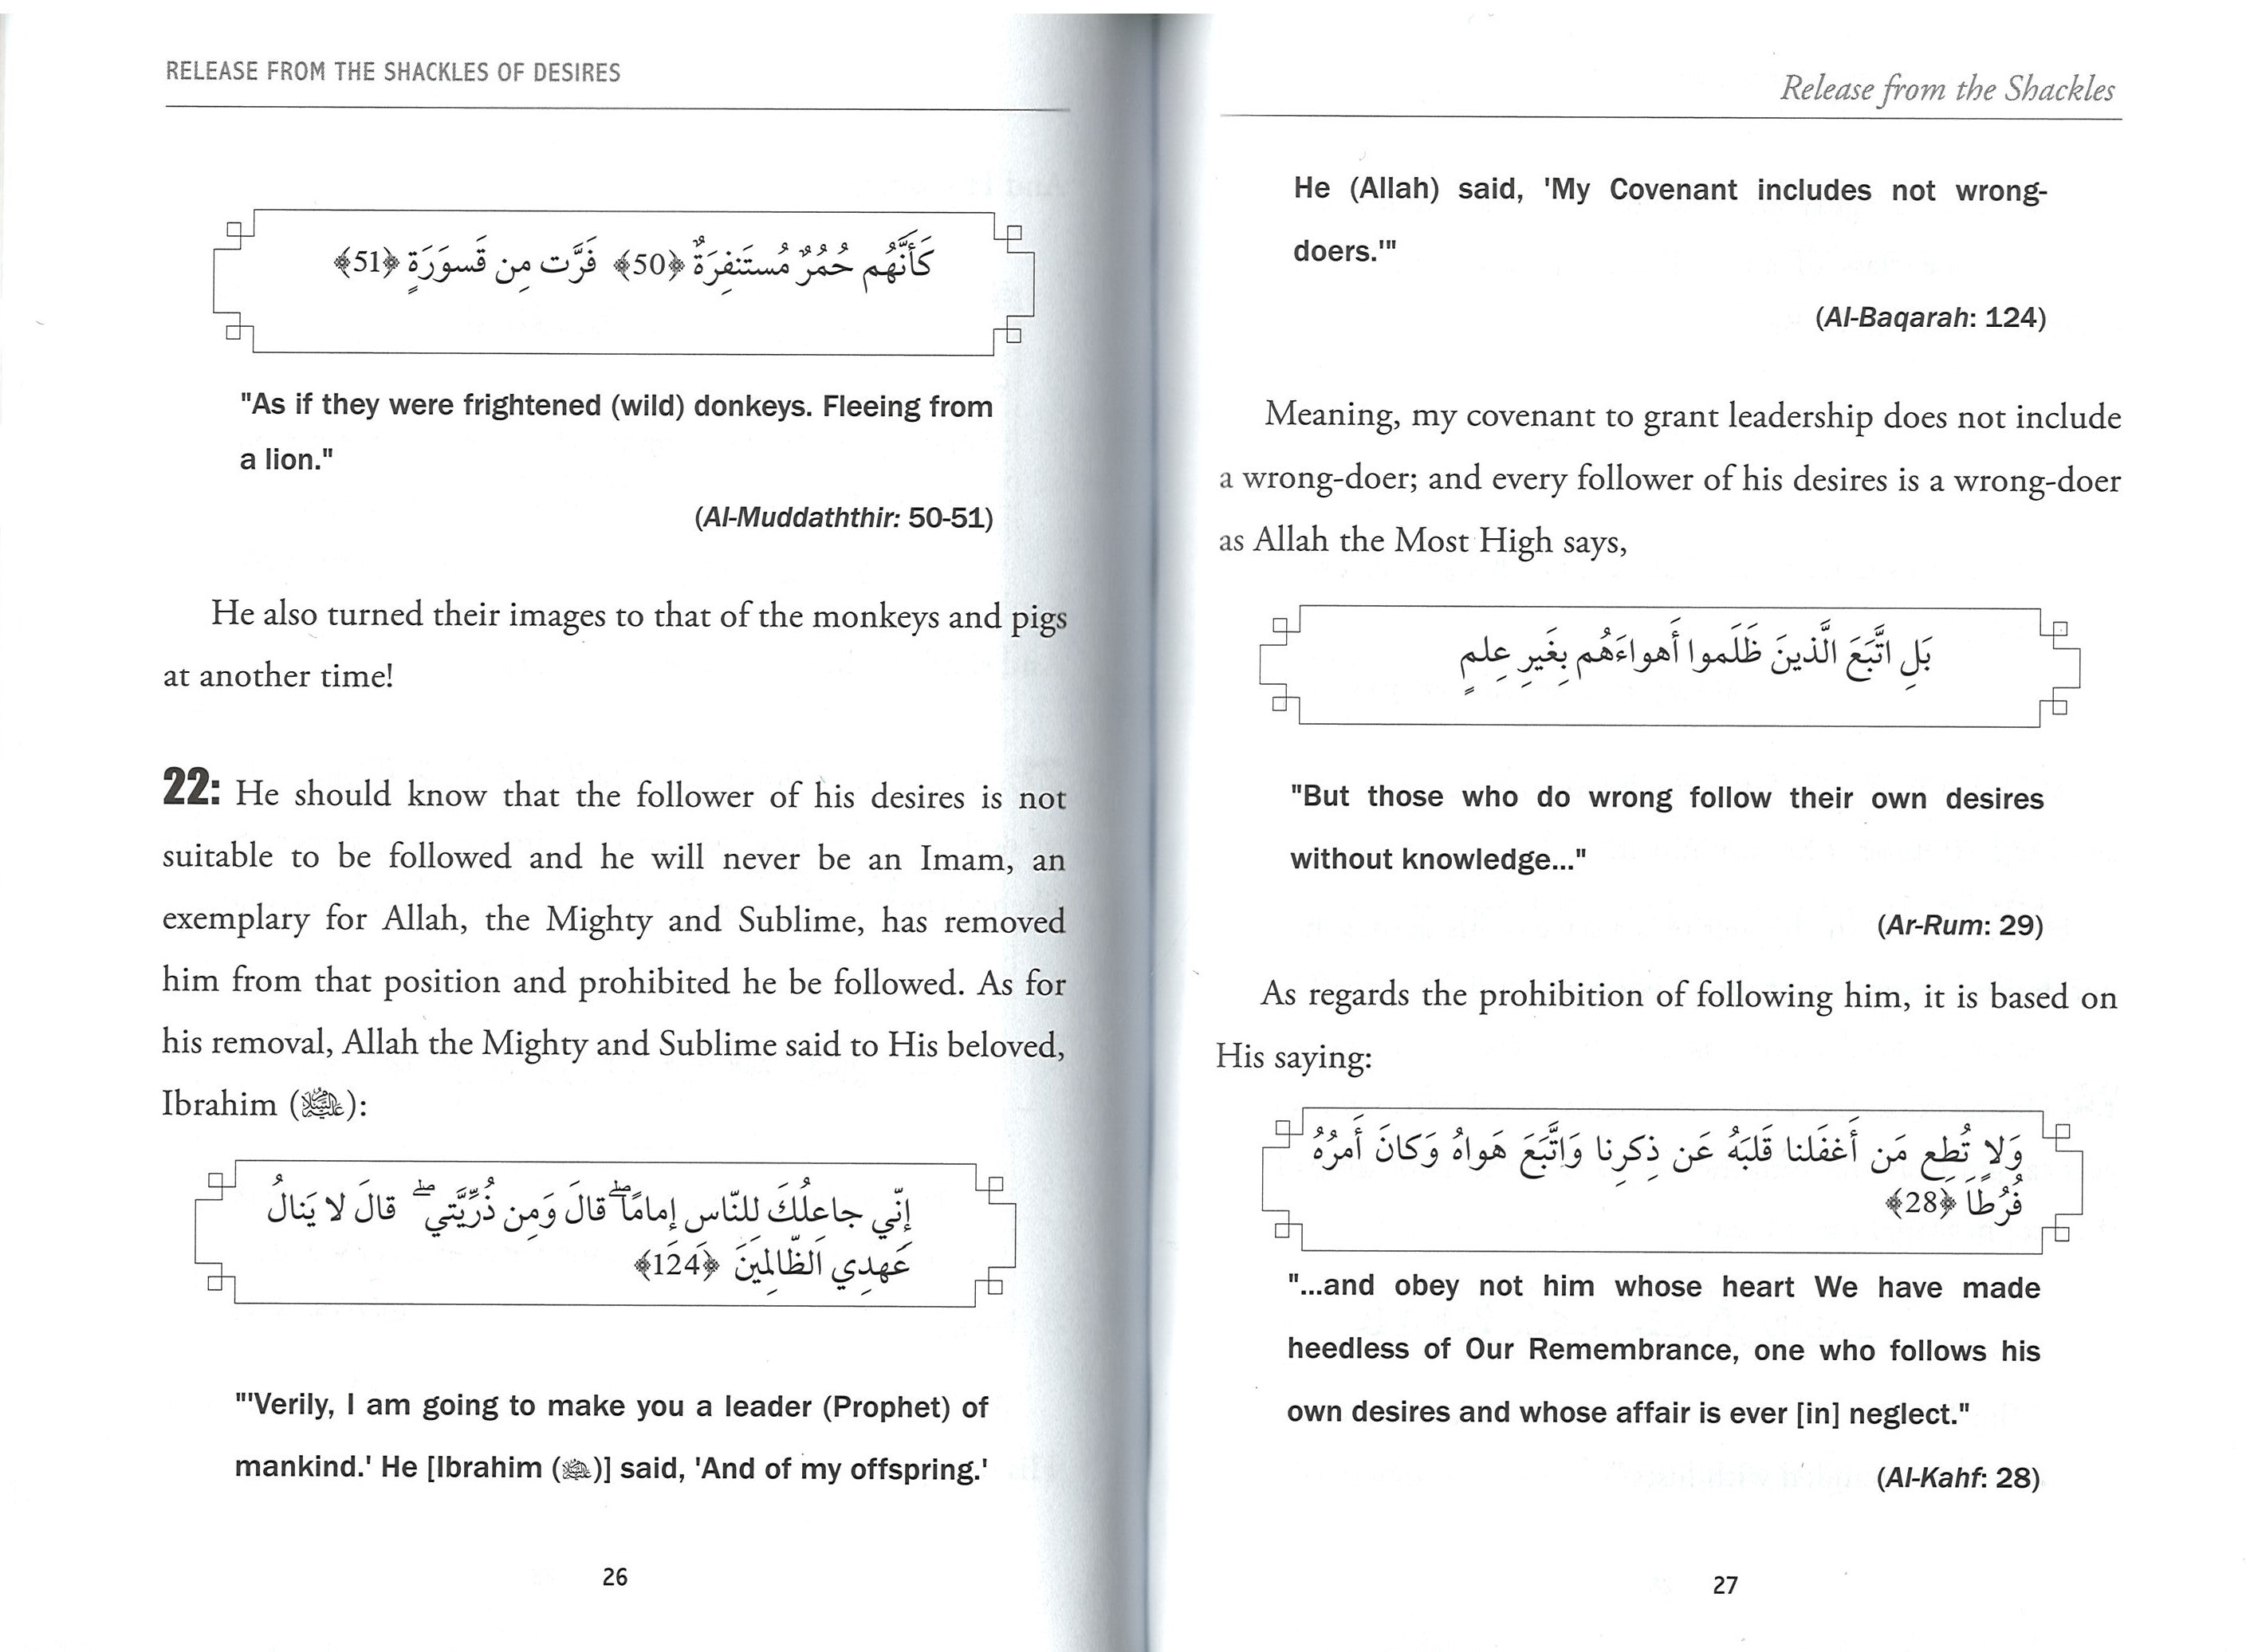 RELEASE FROM THE SHACKLES OF DESIRES
كَأَنَّهُم حُمُرٌ مُستَنفِرَةٌ ﴿50﴾ فَرَّت مِن قَسوَرَةٍ ﴿51﴾
"As if they were frightened (wild) donkeys. Fleeing from
a lion."
(Al-Muddaththir: 50-51)
He also turned their images to that of the monkeys and pigs
at another time!
22: He should know that the follower of his desires is not
suitable to be followed and he will never be an Imam, an
exemplary for Allah, the Mighty and Sublime, has removed
him from that position and prohibited he be followed. As for
his removal, Allah the Mighty and Sublime said to His beloved,
Ibrahim (عليه السلام):
إِنّي جاعِلُكَ لِلنّاسِ إِمامًا ۖ قالَ وَمِن ذُرِّيَّتي ۖ قالَ لا يَنالُ
عَهدِي الظّالِمينَ ﴿124﴾
"'Verily, I am going to make you a leader (Prophet) of
mankind.' He [Ibrahim (عليه السلام)] said, 'And of my offspring.'
26
Release from the Shackles
He (Allah) said, 'My Covenant includes not wrong-
doers.'"
(Al-Baqarah: 124)
Meaning, my covenant to grant leadership does not include
a wrong-doer; and every follower of his desires is a wrong-doer
as Allah the Most High says,
بَلِ اتَّبَعَ الَّذينَ ظَلَموا أَهواءَهُم بِغَيرِ عِلمٍ
"But those who do wrong follow their own desires
without knowledge..."
(Ar-Rum: 29)
As regards the prohibition of following him, it is based on
His saying:
وَلا تُطِع مَن أَغفَلنا قَلبَهُ عَن ذِكرِنا وَاتَّبَعَ هَواهُ وَكانَ أَمرُهُ
فُرُطًا ﴿28﴾
"...and obey not him whose heart We have made
heedless of Our Remembrance, one who follows his
own desires and whose affair is ever [in] neglect."
(Al-Kahf: 28)
27